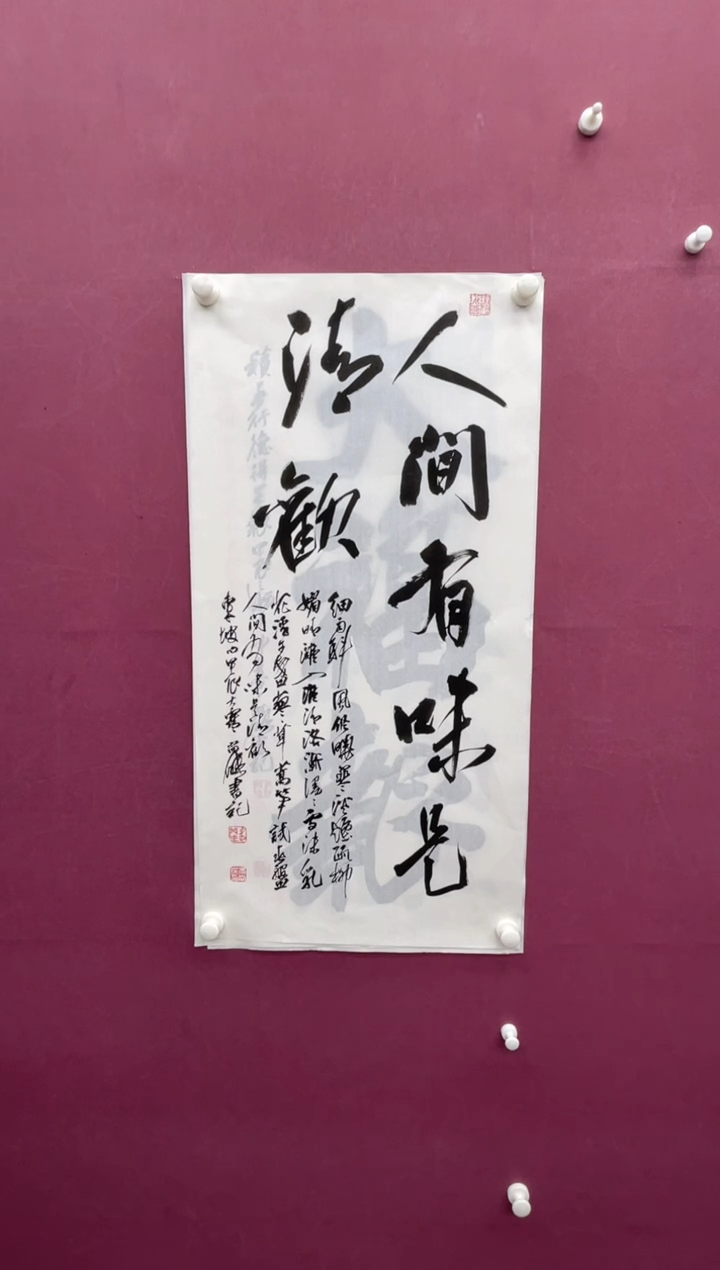 人間有味是
清歡
細雨斜風作曉寒淡煙疏柳
媚晴灘入淮清洛漸漫漫雪沫乳
花浮午盞蓼茸蒿筍試春盤
人間有味是清歡
東坡句甲辰大寒書記